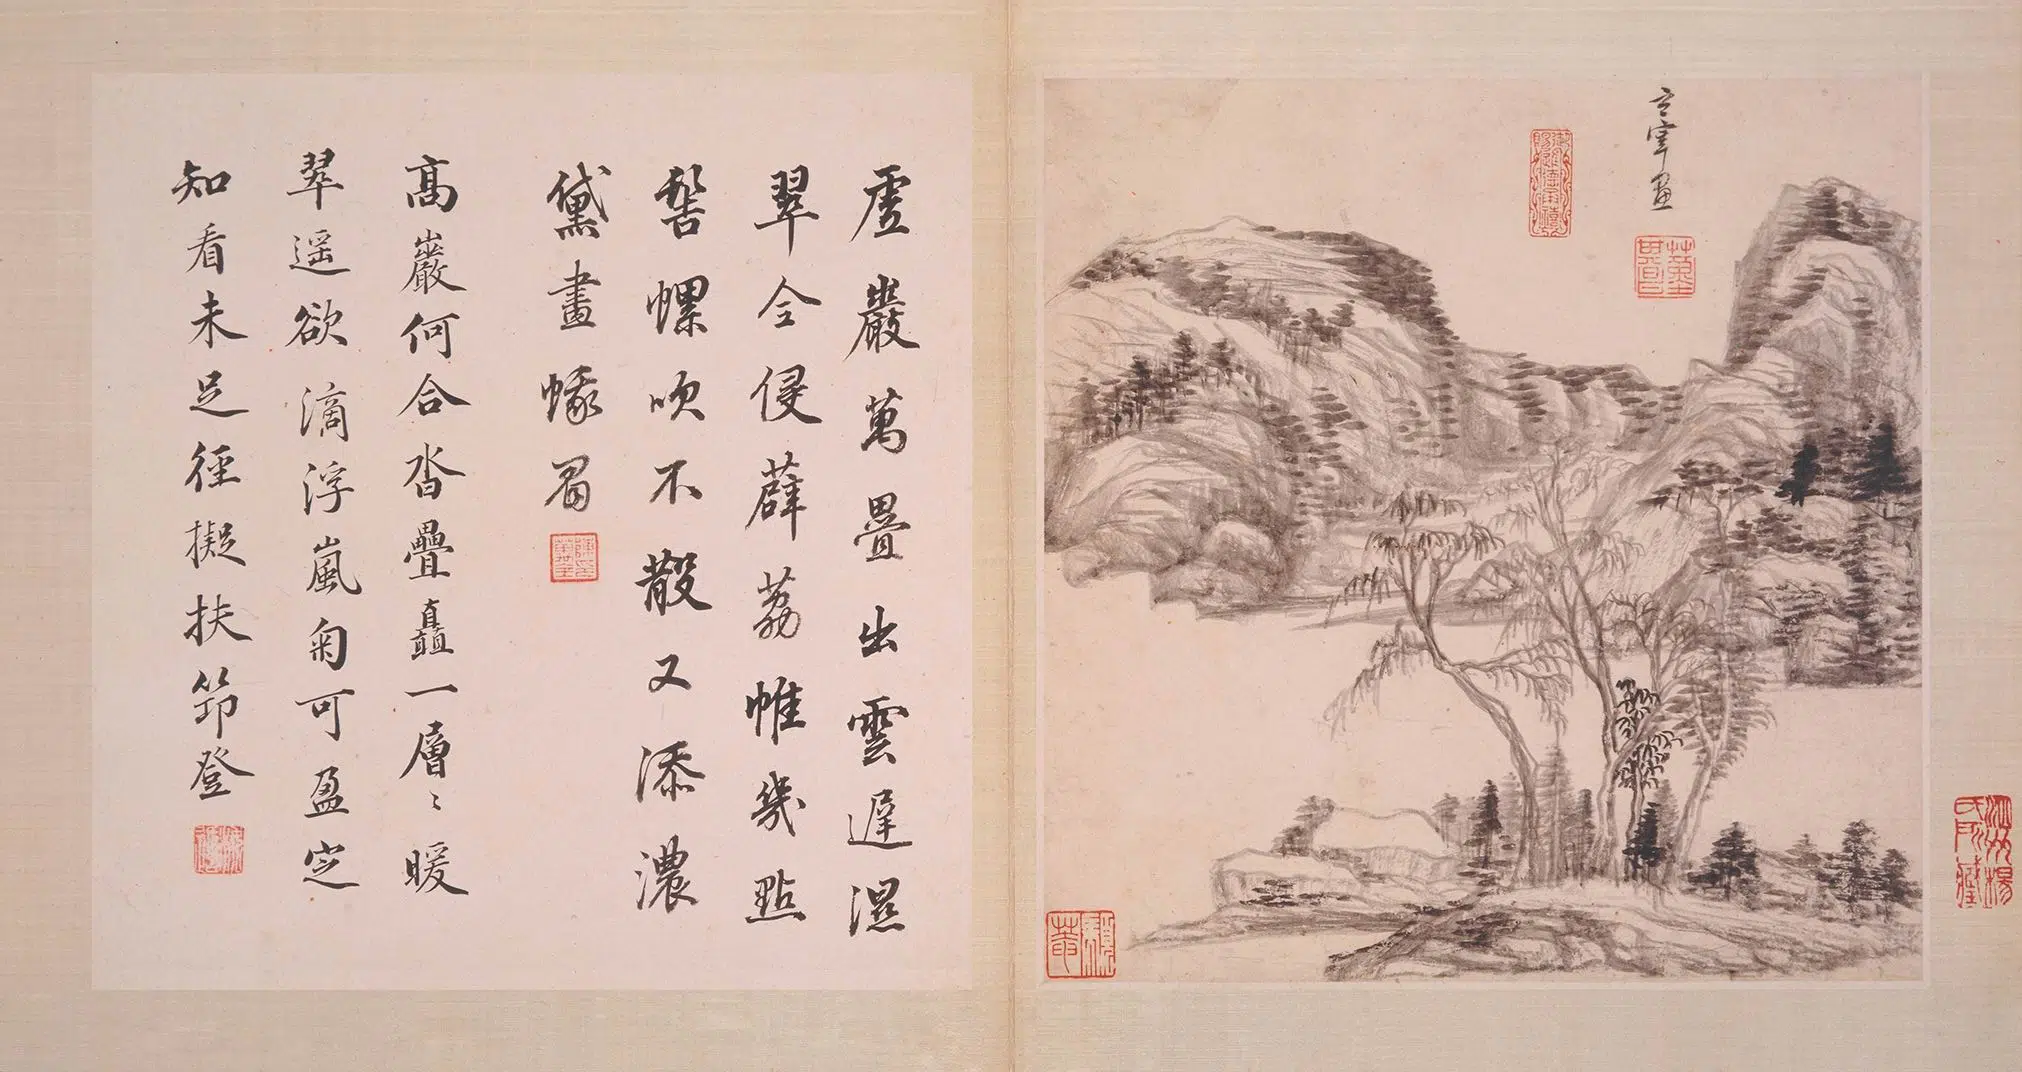 玄宰畫
董其昌
虗巖萬疊出雲遲濕
翠令侵薜荔帷幾點
髻螺吹不散又添濃
黛畫蛾眉
高巖何合沓疊矗一層〻暖
翠遥欲滴浮嵐匊可盈定
知看未足徑擬扶筇登